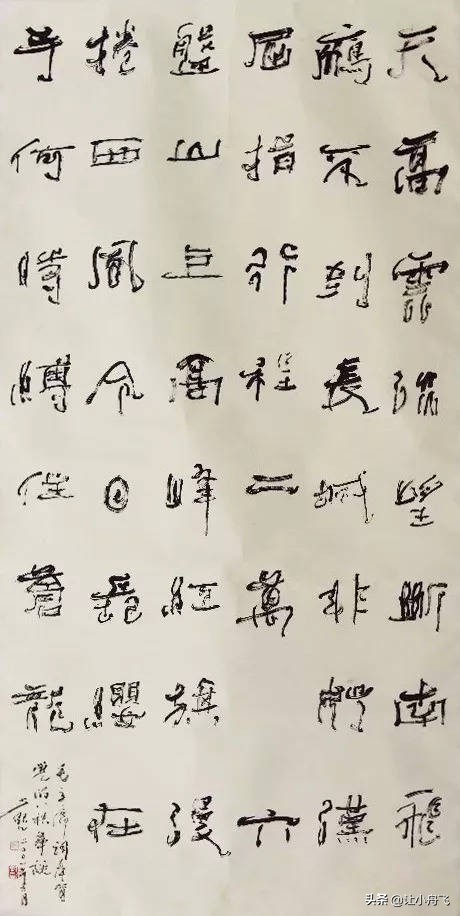 天高雲淡望斷南飛
鴈不到長城非好漢
屈指行程二萬六
盤山上高峰紅旗漫
捲西風今日長纓在
手何時縛住蒼龍
毛主席詞
头条 @让小舟飞